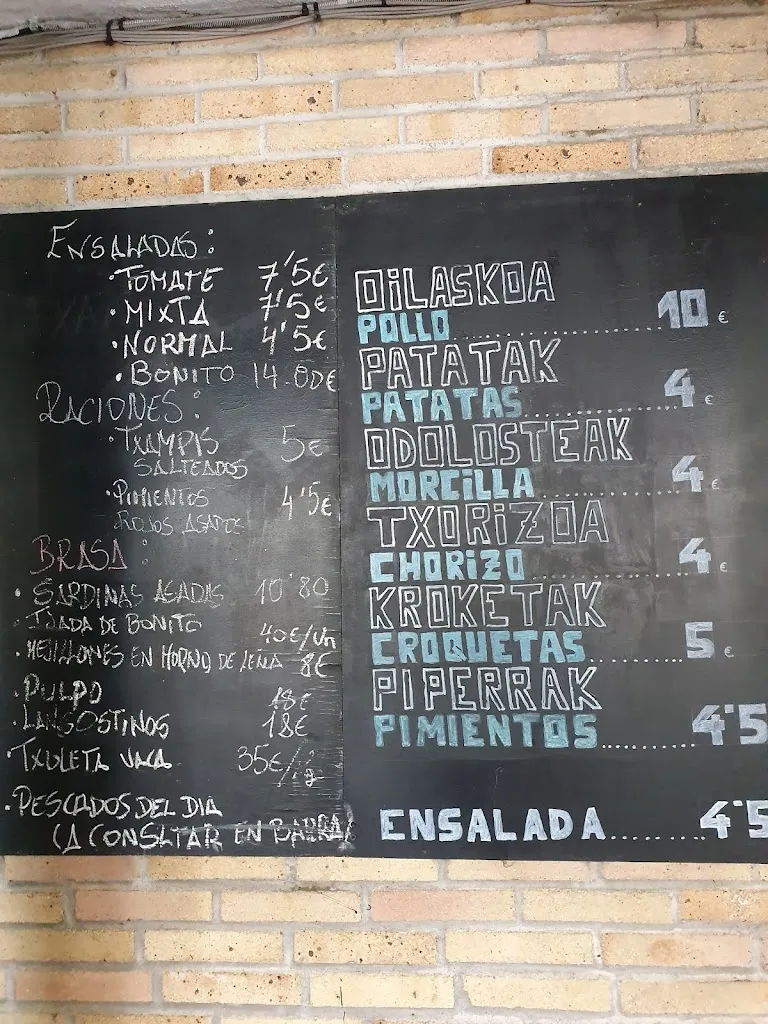 ENSALADAS:
• TOMATE 7'5€
• MIXTA 7'5€
• NORMAL 4'5€
• BONITO 14.80€
RACIONES:
• TXAMPIS 5€
SALTEADOS
• PIMIENTOS 4'5€
ROJOS ASADOS
BRASA:
• SARDINAS ASADAS 10'80
• IJADA DE BONITO 40€/Un
• MEJILLONES EN HORNO DE LEÑA 8€
• PULPO 18€
• LANGOSTINOS 18€
• TXULETA VACA 35€/Kg
• PESCADOS DEL DIA
(A CONSLTAR EN BARRA)
OiLASKOA
POLLO 10 €
PATATAK
PATATAS 4 €
ODOLOSTEAK
MORCiLLA 4 €
TXORIZOA
CHORiZO 4 €
KROKETAK
CROQUETAS 5 €
PIPERRAK
PIMIENTOS 4'5
ENSALADA 4'5